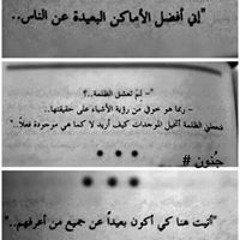 "إني أفضل الأماكن البعيدة عن الناس..
"- لِمَ تعشق الظلمة..؟
- ربما هو خوفي من رؤية الأشياء على حقيقتها..
فتجعلني الظلمة أتخيل الموجدات كيف أريد لا كما هي موجودة فعلاً.."
• • •
جُنون #
• • •
"أتيت هنا كي أكون بعيداً عن جميع من أعرفهم.."